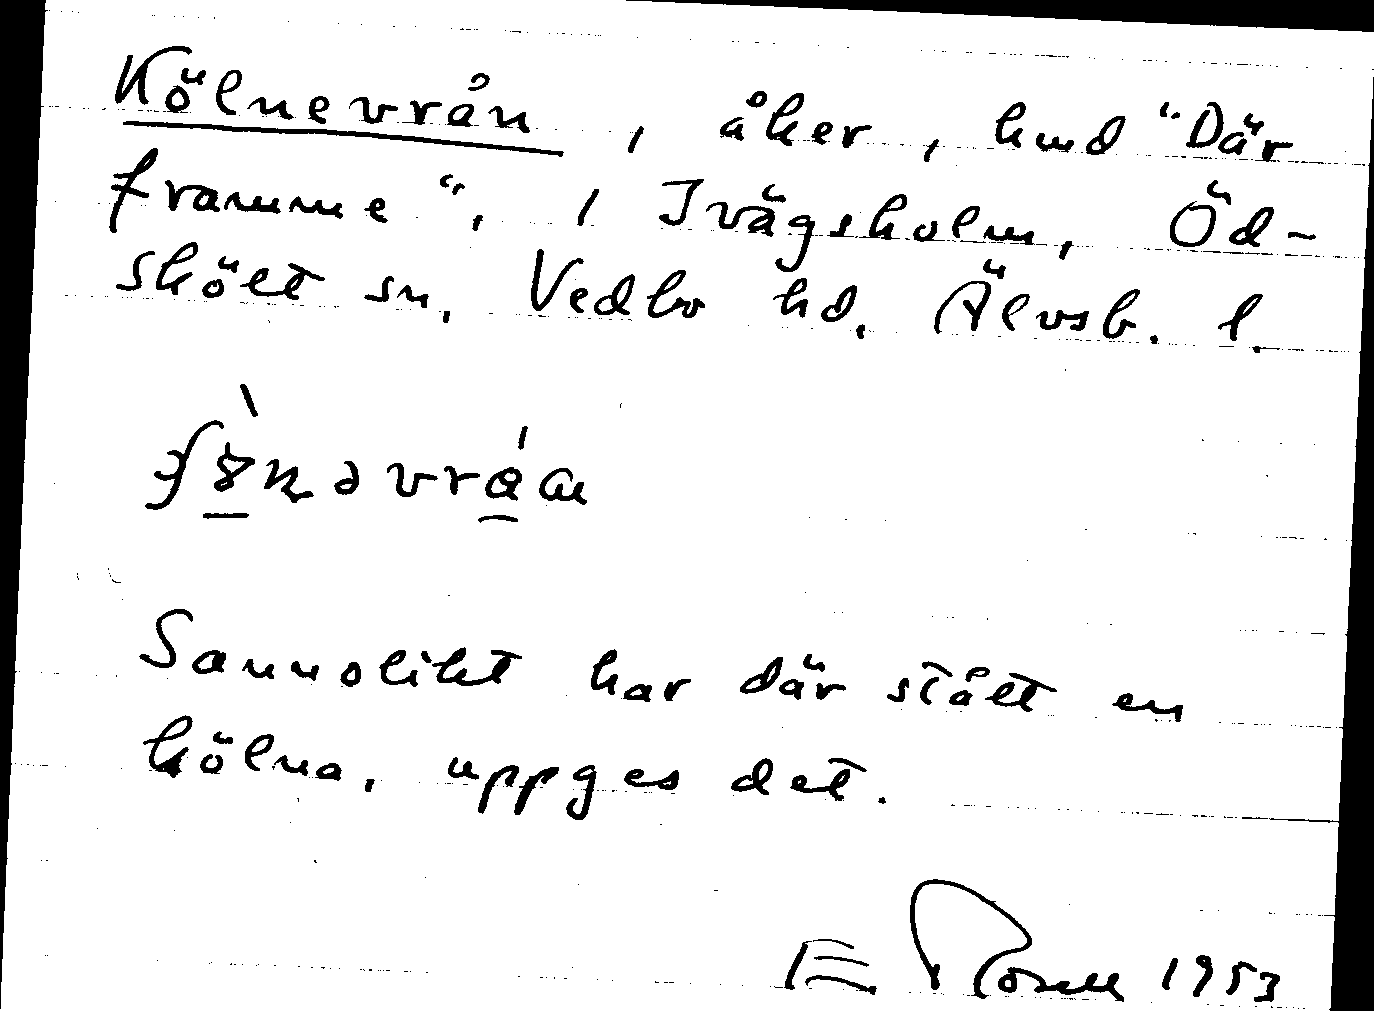 Kölnevrån, åker, hmd "Där
framme", 1 Ivägsholm, Öd-
skölt sn, Vedbo hd, Älvsb. l.
Sannolikt har där stått en
kölna, uppges det.
E Rosell 1953